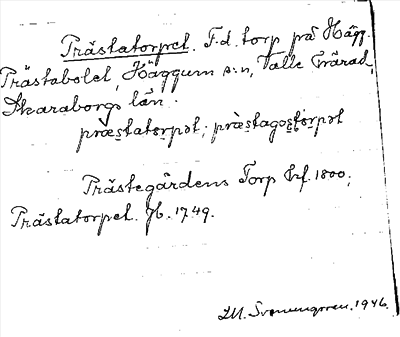 Prästatorpet. F.d. torp på Hägg.
Prästabolet, Häggum s:n, Valle härad,
Skaraborgs län.
præstatorpət; præstagostorpət
Prästegårdens Torp Hfl. 1800;
Prästatorpet. Jb. 1749.
I.M. Svenungsson. 1946.